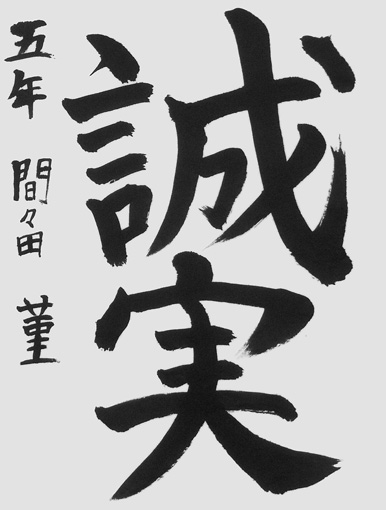 誠実
五年 間々田 菫